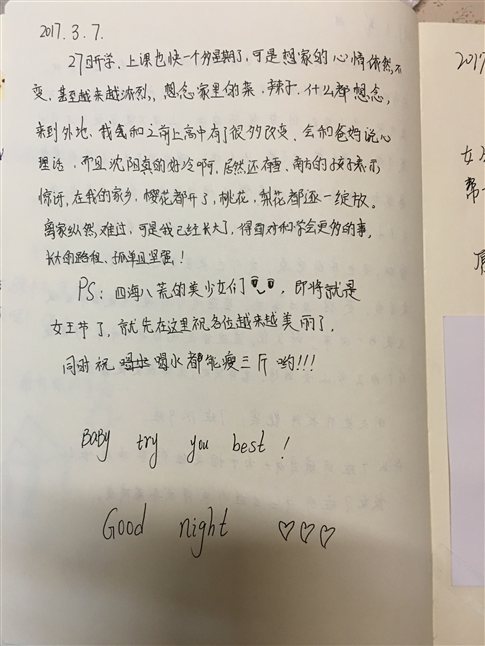 2017. 3. 7.
27日开学、上课也快一个多星期了,可是想家的心情依然不
变,甚至越来越浓烈,想念家里的菜、辣子、什么都想念,
来到外地、我会和之前上高中有了很多改变、会和爸妈说心
理话,而且沈阳真的好冷啊,居然还有雪、南方的孩子表示
惊讶,在我的家乡,樱花都开了,桃花,梨花都逐一绽放。
离家纵然难过,可是我已经长大了,得面对和学会更多的事,
长大的路程、孤单且坚强!
PS:四海八荒的美少女们,即将就是
女王节了,就先在这里祝各位越来越美丽了,
同时祝 喝水都能瘦三斤哟!!!
BABy try you best !
Good night ♡♡♡
2017
女
帮